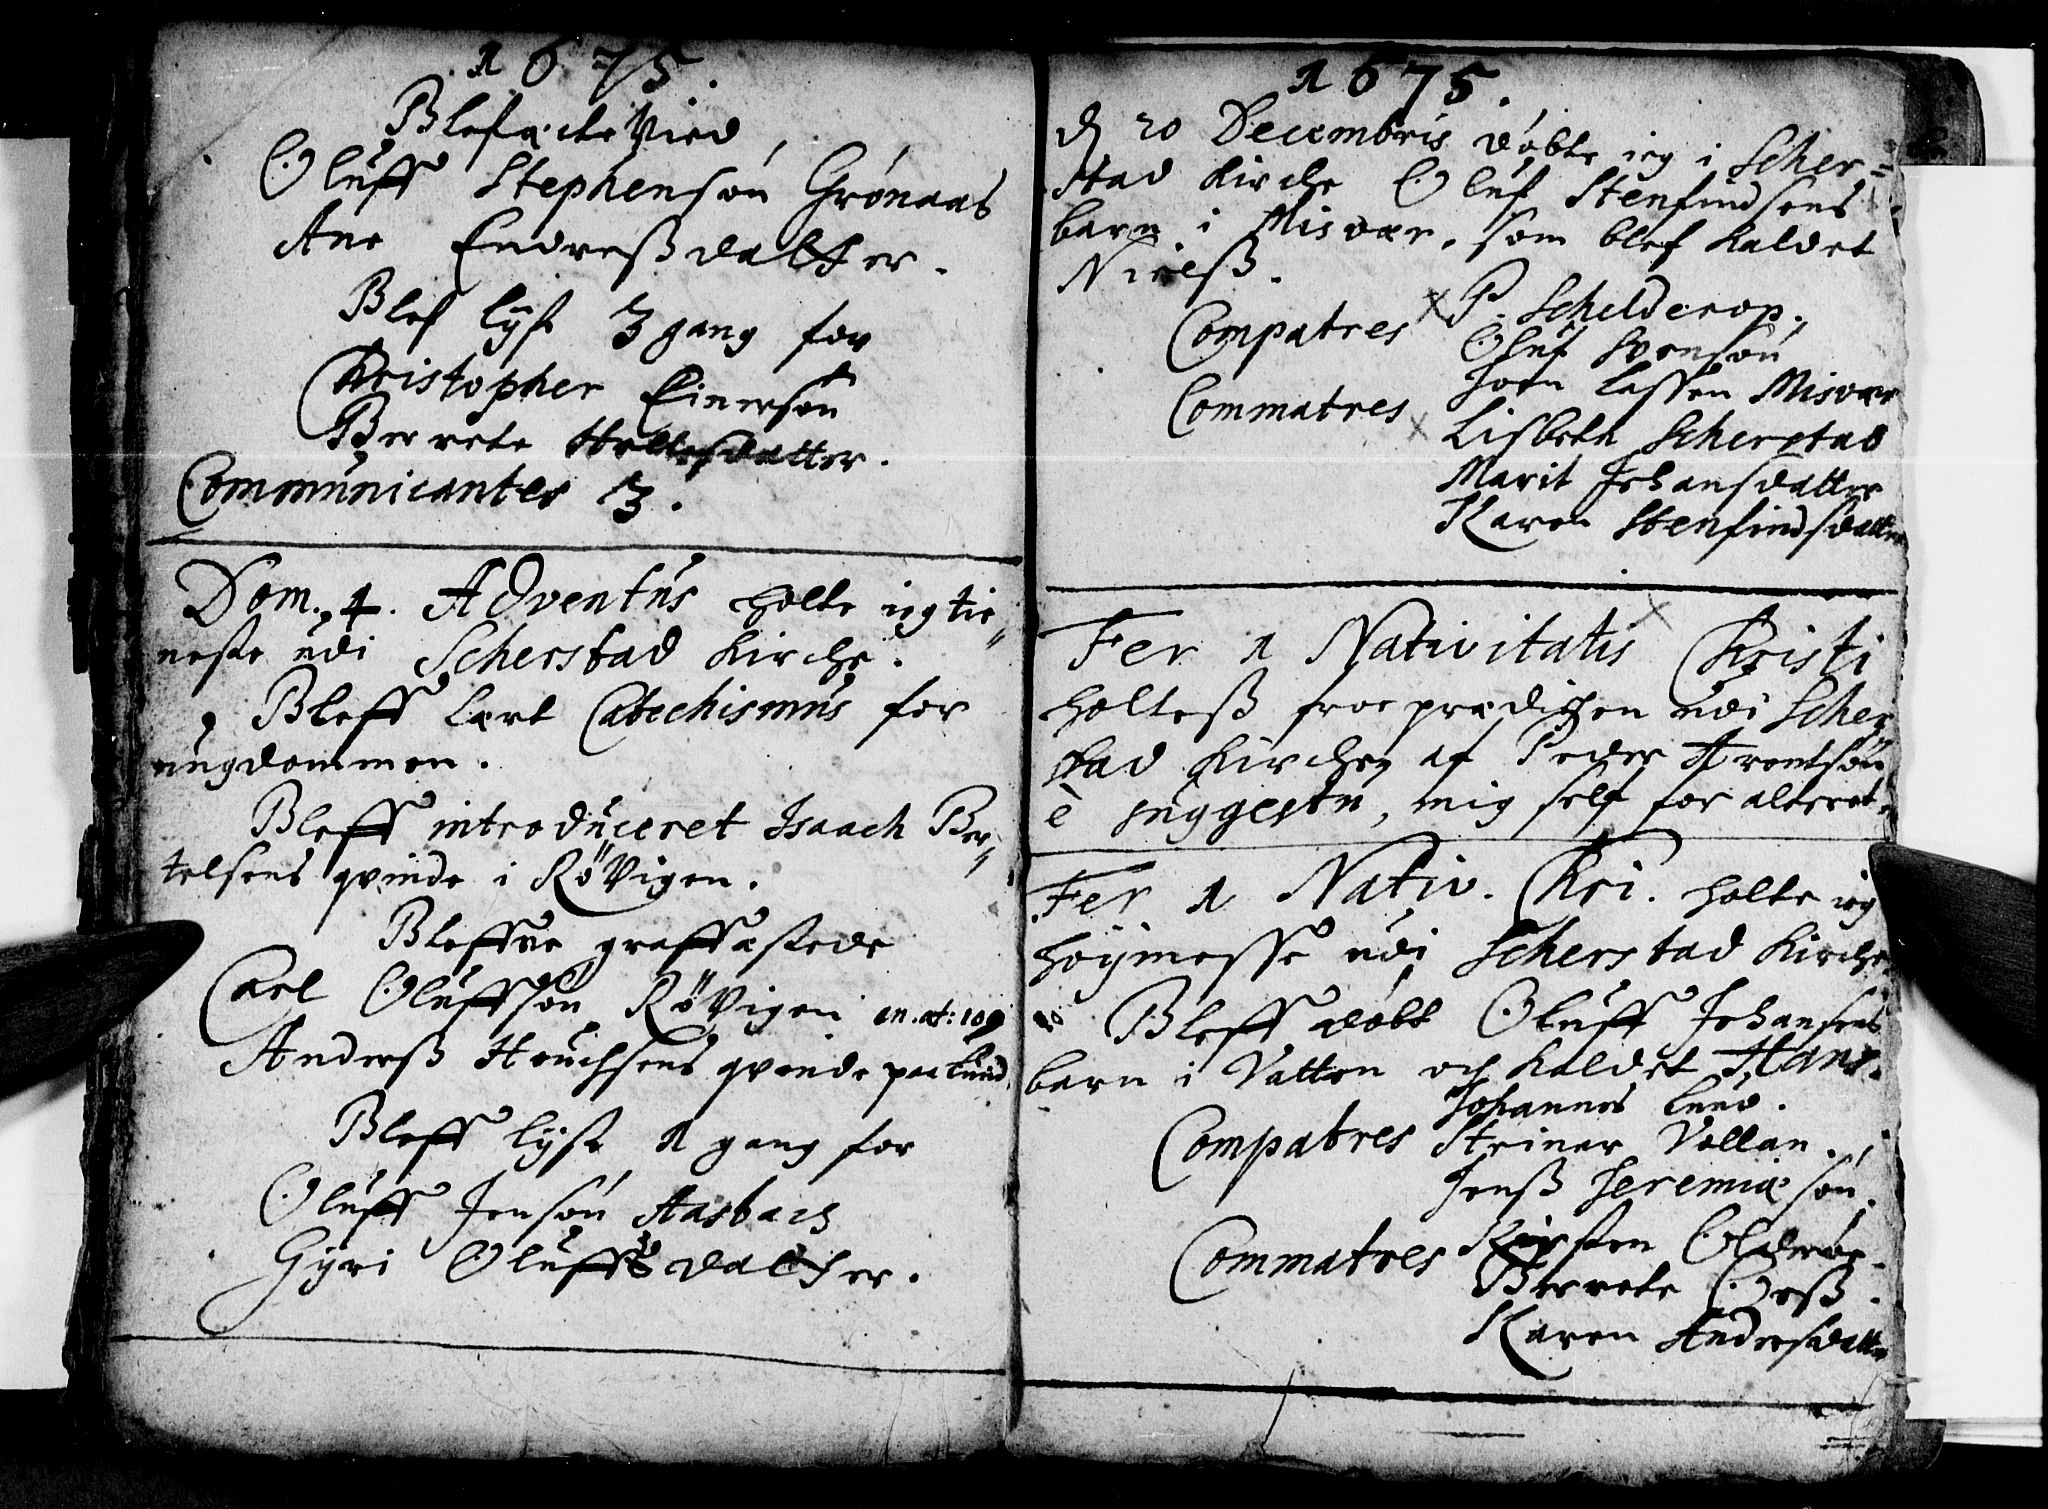 1675.
Blef ecte Vied
Oluff Stephensøn Grønaas
Ane Endreßdatter.
Blef lyst 3 gang for
Christopher Einersøn
Berrete
Communicantes 3.
Dom. 4. Adventus holte ieg tie-
neste udi Scherstad Kirche.
Bleff lært Catechismus for
ungdommen.
Bleff introduceret Isaach Ber-
telsens qvinde i RøVigen.
Bleffve graffæstede
Carl Oluffsøn RøVigen an. æt: 109
Anderß qvinde
Bleff lyst 1 gang for
Oluff Jensøn Aasbach
Gyri Oluffsdatter.
1675.
d 20 Decembris døbte ieg i Scher=
stad Kirche Oluf Stenfindsens
barn i Misvær, som blef kaldet
Nielß.
Compatres P. Schelderop,
Oluf Svensøn
Joen Lassen Misvær
Commatres Lisbeth Scherstad
Marit Johansdatter
Karen Stenfindsdatter
Fer 1 Nativitatis Christi
holteß froe prædichen udi Scher
stad Kirche, af Peder Arentsøn
è suggestu, mig self for alteret.
Fer 1 Nativ. Chri. holte ieg
høymesse udi Scherstad Kirche
Bleff døbt Oluff Johansens
barn i Vatten och kaldet Hans.
Johannes Lund.
Compatres Steiner Vollan.
Jenß Jeremiæsøn.
Commatres Kirsten Olderøe.
Berrete Örß.
Karen Andersdatter